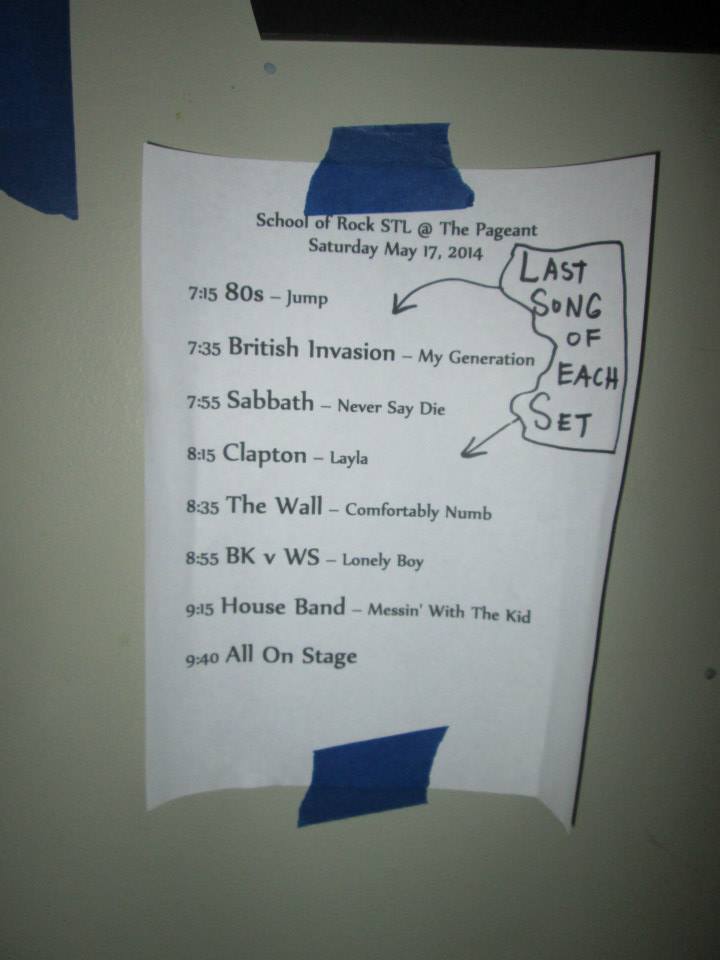 School of Rock STL @ The Pageant
Saturday May 17, 2014
LAST
SONG
OF
EACH
SET
7:15 80s – Jump
7:35 British Invasion – My Generation
7:55 Sabbath – Never Say Die
8:15 Clapton – Layla
8:35 The Wall – Comfortably Numb
8:55 BK v WS – Lonely Boy
9:15 House Band – Messin' With The Kid
9:40 All On Stage